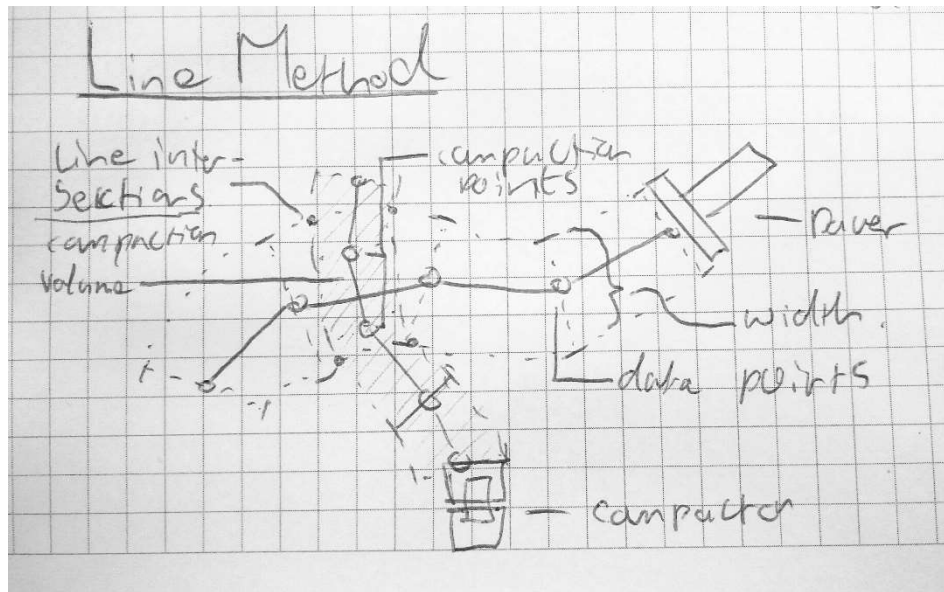 Line Method
Line inter-
sections
compaction
volume
compaction
points
Paver
width
data points
compactor